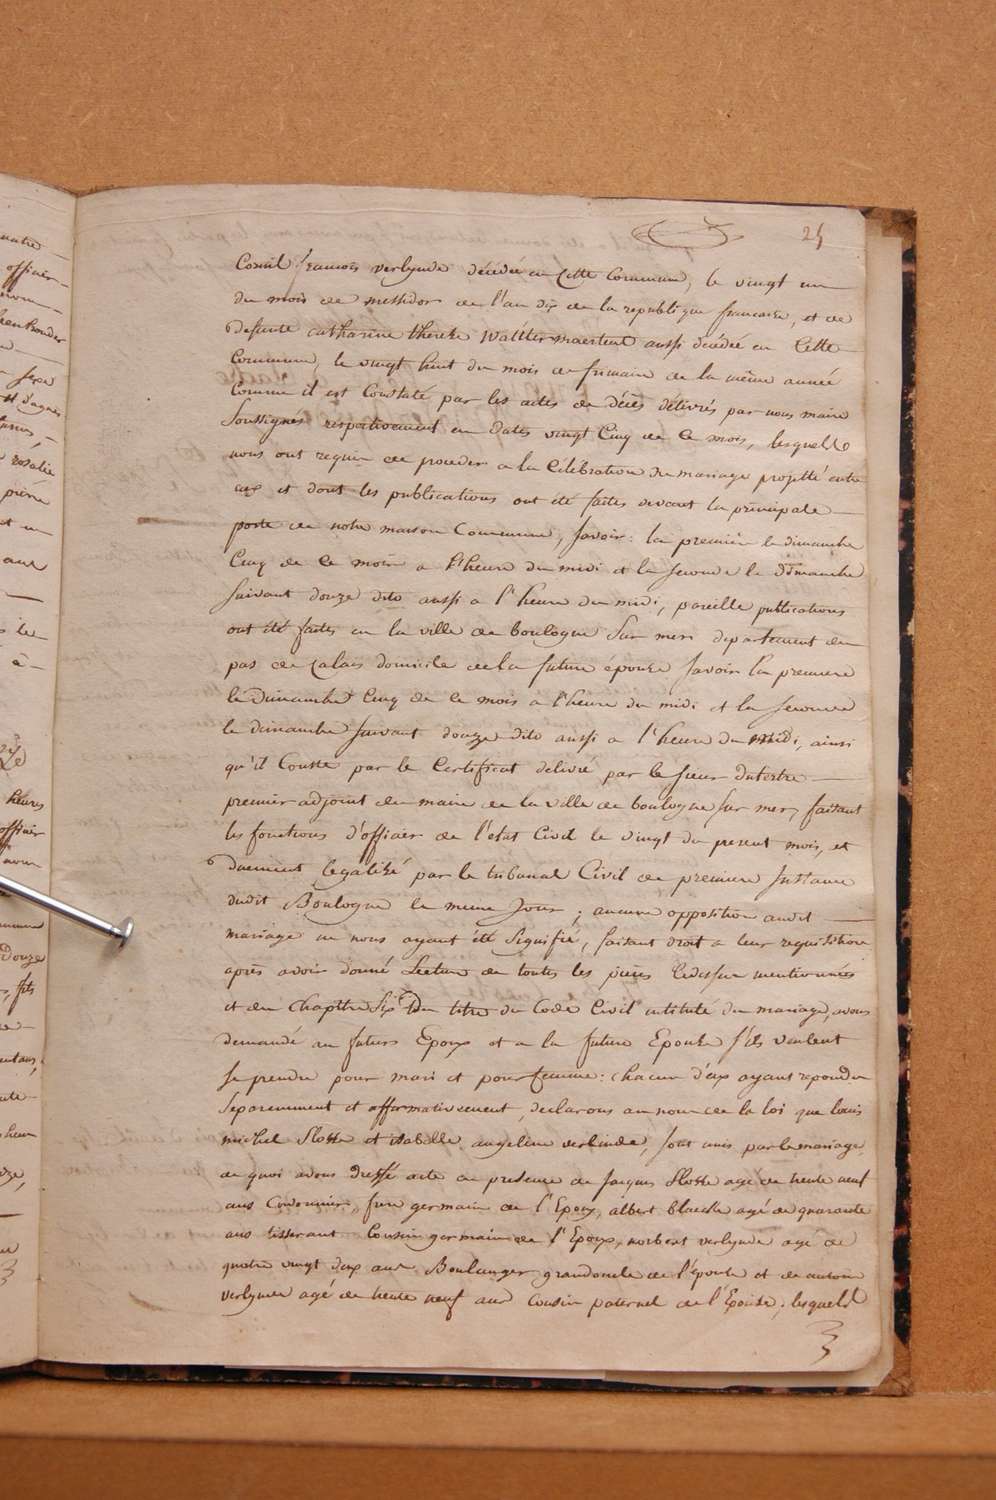 25
Corneil françois verlynde décédé en Cette Commune, le vingt un
du mois de messidor de l'an dix de la republique française, et de
defunte catharine therese walter maertens aussi décédée en Cette
Commune, le vingt huit du mois de frimaire de la même année
Comme il est Constaté par les actes de décès delivrés par nous maire
Soussignés respectivement en dates vingt Cinq de Ce mois, lesquels
nous ont requis de proceder a la Célébration du mariage projetté entre
eux et dont les publications ont été faites devant la principale
porte de notre maison Commune, Savoir: la premiere le dimanche
Cinq de Ce mois a l'heure du midi et la Seconde le dimanche
Suivant douze dito aussi a l'heure du midi, pareille publications
ont été faites en la ville de boulogne Sur mer departement du
pas de Calais domicile de la future épouse Savoir la premiere
le Dimanche Cinq de Ce mois a l'heure du midi et la Seconde
le dimanche Suivant douze dito aussi a l'heure du midi, ainsi
qu'il Conste par le Certificat delivré par le Sieur Dutertre
premier adjoint du maire de la ville de boulogne Sur mer, faisant
les fonctions d'officier de l'état Civil le vingt du present mois, et
Duement legalisé par le tribunal Civil de premiere Instance
dudit Boulogne le meme Jour; aucune opposition audit
mariage ne nous ayant été Signifié, faisant droit a leur requisition
après avoir donné Lecture de toutes les pièces Cidessus mentionnées
et du Chapitre Six Du titre du Code Civil intitulé du mariage, avons
demandé au futur Epoux et a la future Epouse S'ils veulent
Se prendre pour mari et pour femme: chacun d'eux ayant repondu
Separemment et affirmativement, declarons au nom de la loi que louis
michel Slosse et isabelle angeline verlinde, Sont unis par le mariage
de quoi avons dressé acte en presence de Jacques Slosse agé de trente neuf
ans Cordonnier, frere germain de l'Epoux, albert blaecke agé de quarante
ans tisserant Cousin germain de l'Epoux, norbert verlynde agé de
quatre vingt deux ans Boulanger grandoncle de l'épouse et de antoine
verlynde agé de trente neuf ans Cousin paternel de l'Epouse; lesquels